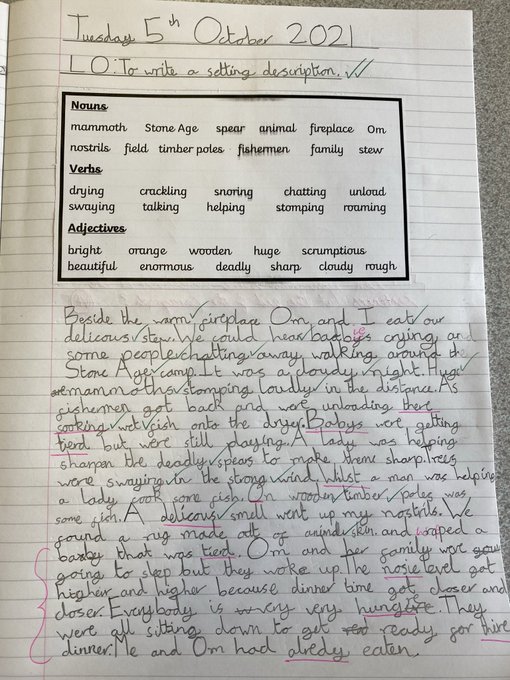 Tuesday 5th October 2021
LO: To write a setting description.
Nouns
mammoth Stone Age spear animal fireplace Om
nostrils field timber poles fishermen family stew
Verbs
drying crackling snoring chatting unload
swaying talking helping stomping roaming
Adjectives
bright orange wooden huge scrumptious
beautiful enormous deadly sharp cloudy rough
Beside the warm fireplace Om and I eat our
delicous stew. We could hear babys crying and
some people chatting away walking around the
Stone Age camp. It was a cloudy night. Huge
mammoths stomping loudly in the distance. As
fishermen got back and were unloading there
cooking wet fish onto the dryer. Babys were getting
tierd but were still playing. A lady was helping
sharpen the deadly spears to make theme sharp. Trees
were swaying in the strong wind. Whilst a man was helping
a lady cook some fish. On wooden timber poles was
some fish. A delicous smell went up my nostrils. We
found a rug made of animal skin and wraped a
baby that was tierd. Om and her family wer
going to sleep but they woke up. The nosie level got
higher and higher because dinner time got closer and
closer. Everybody is very very hungire. They
were all sitting down to get ready for thire
dinner. Me and Om had alredy eaten.